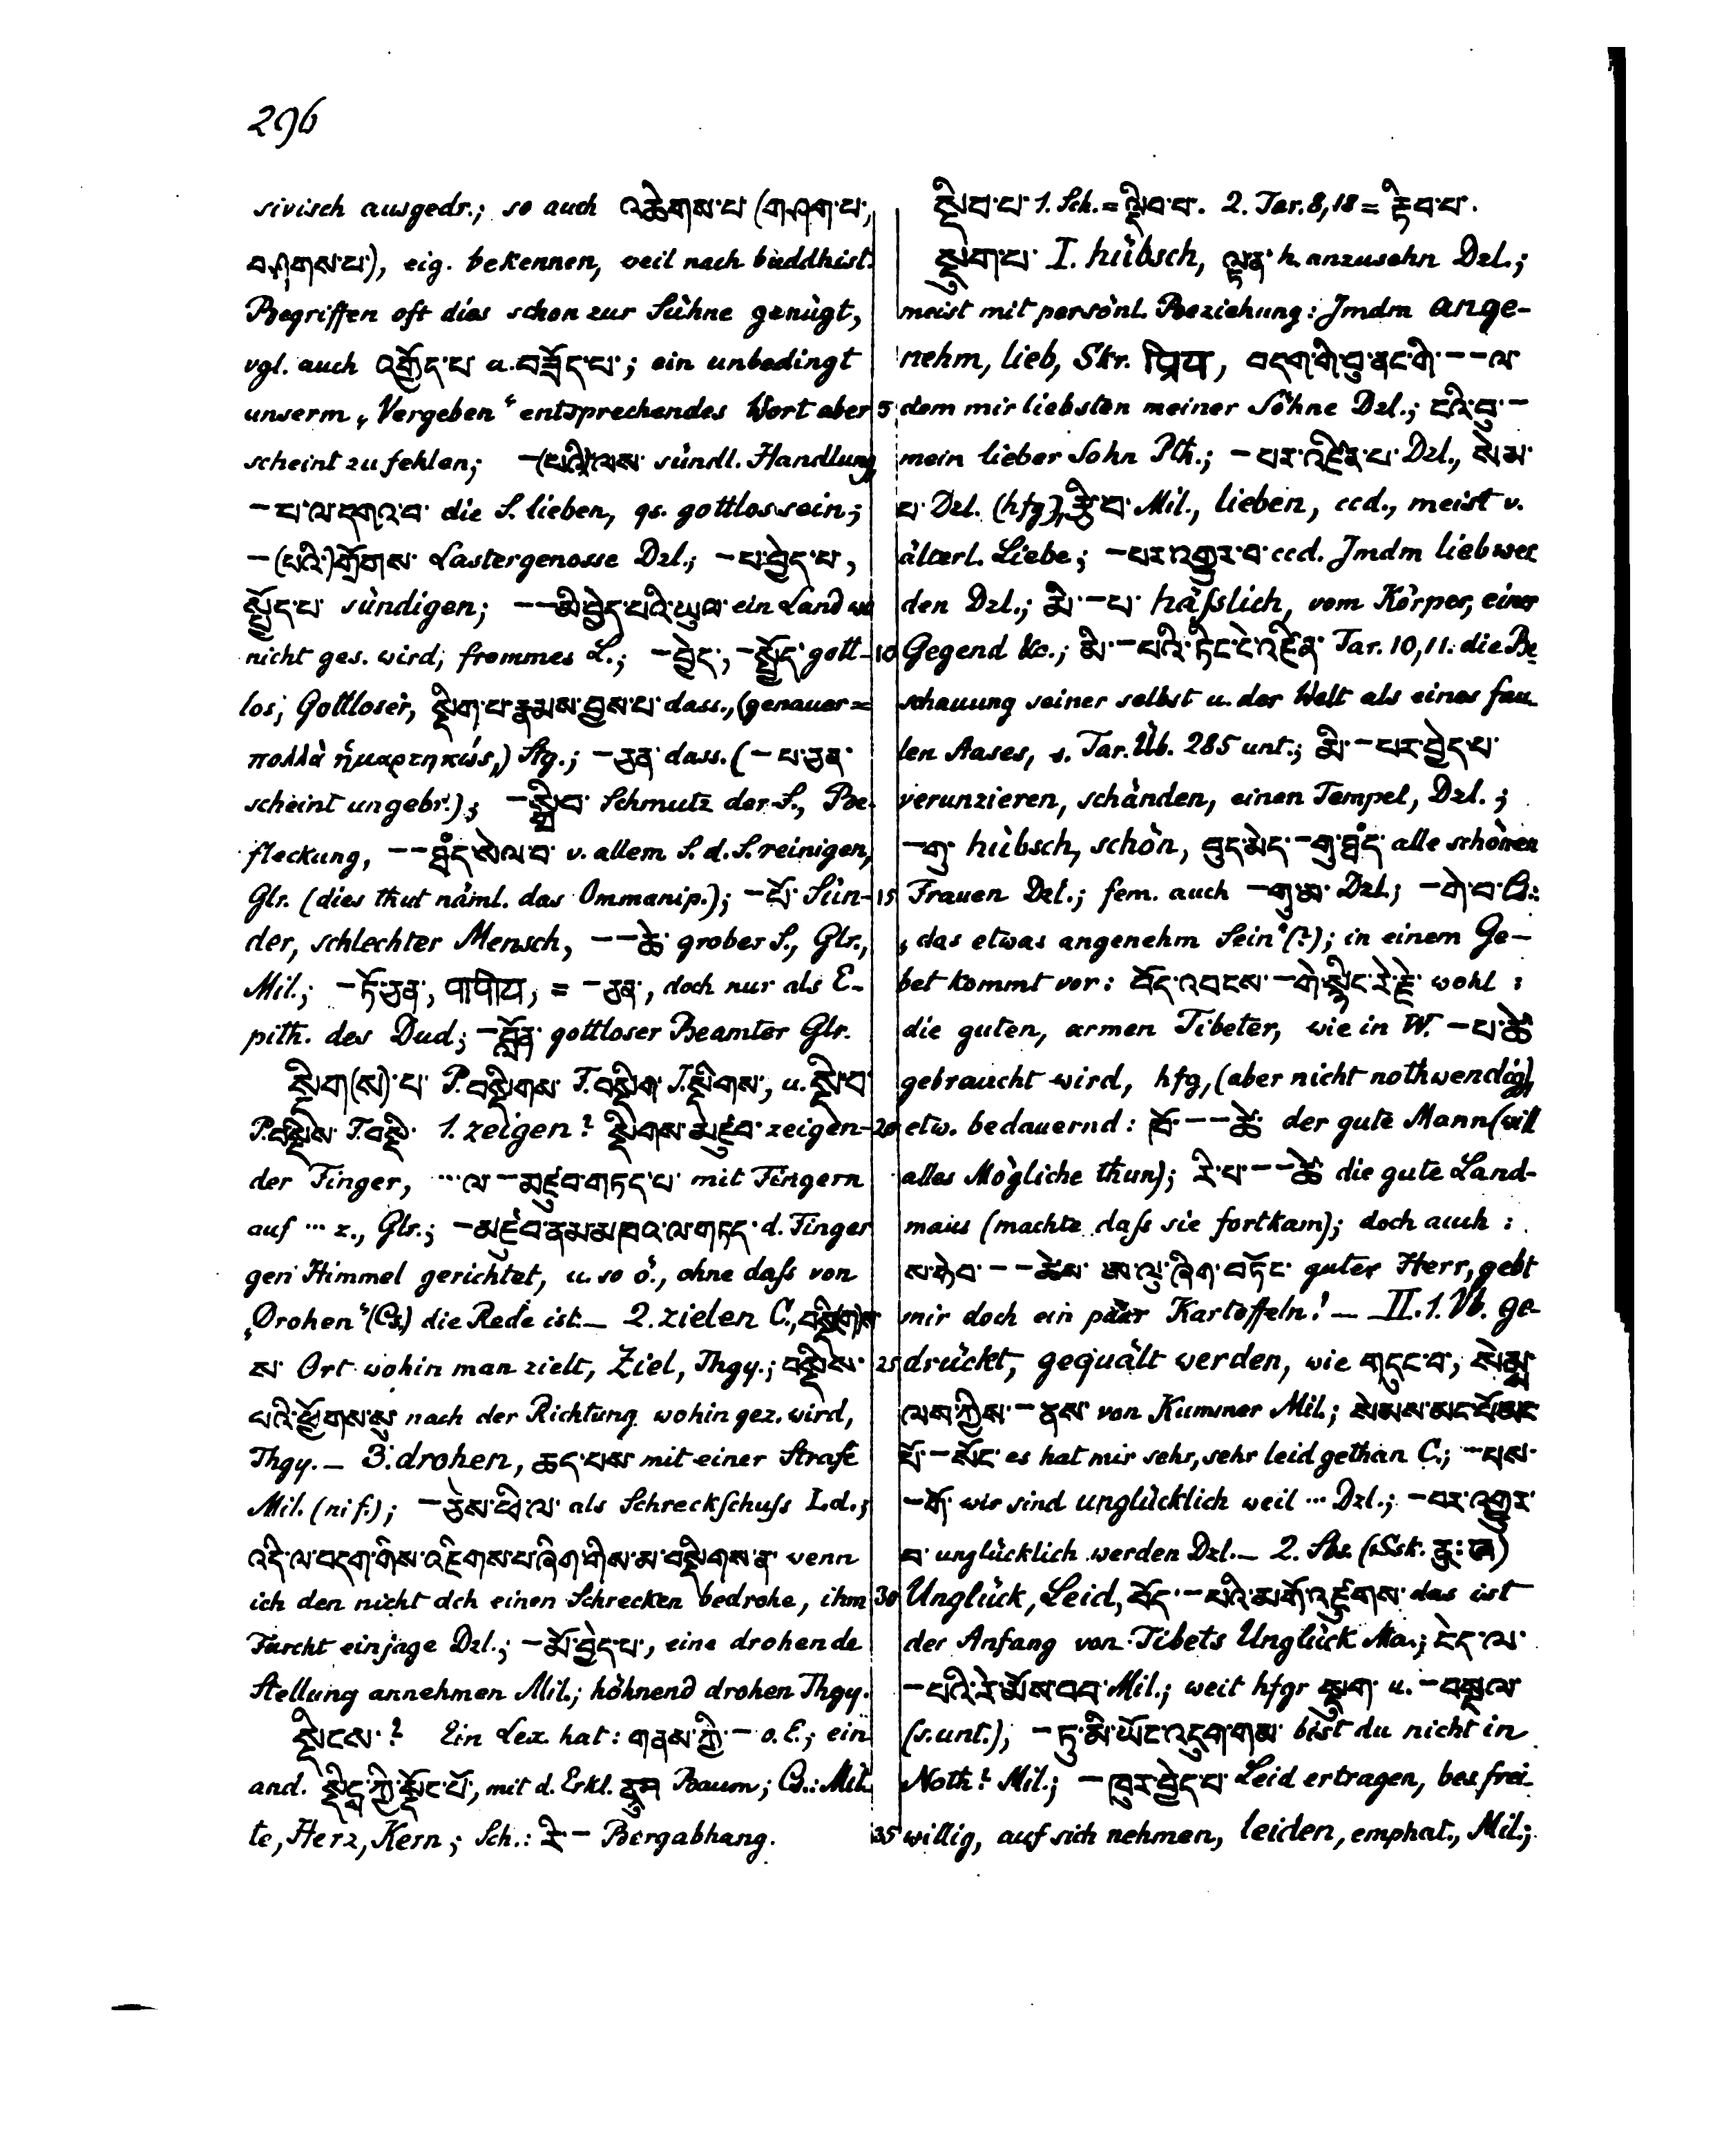 296
sivisch ausgedr.; so auch འཆེགས་པ (གཤག་པ,
བཤགས་པ), eig. bekennen, weil nach buddhist.
Begriffen oft dies schon zur Sühne genügt,
vgl. auch འགྱོད་པ u. བཟོད་པ་; ein unbedingt
unserm „Vergeben“ entsprechendes Wort aber
scheint zu fehlen; –(པའི་)ལས sündl. Handlung,
–པ་ལ་དགའ་བ die S. lieben, qs. gottlos sein;
–(པའི་)གྲོགས་ Lastergenosse Dzl.; –པ་བྱེད་པ,
སྤྱོད་པ sündigen; ––མི་བྱེད་པའི་ཡུལ་ ein Land wo
nicht ges. wird, frommes L.; –བྱེད་, –སྤྱོད་ gott-
los; Gottloser, སྡིག་པ་རྣམས་བྱས་པ dass., (genauer =
πολλὰ ἡμαρτηκώς,) Stg.; –ཅན་ dass. (–པ་ཅན་
scheint ungebr.); –སྒྲིབ་ Schmutz der S., Be-
fleckung, ––ཐམས་ཅད་སེལ་བ v. allem S. d. S. reinigen,
Glr. (dies thut näml. das Ommanip.); –པོ་ Sün-
der, schlechter Mensch, ––ཆེ་ grober S., Glr.,
Mil.; –ཏོ་ཅན་, पापीय, = –ཅན་, doch nur als E-
pith. des Dud; –བློན་ gottloser Beamter Glr.
སྡིག(ས)་པ P. བསྡིགས F. བསྡིག་ I. སྡིགས་, u. སྡི་བ
P. བསྡིས་ F. བསྡི་ 1. zeigen? སྡིགས་མཛུབ་ zeigen-
der Finger, ...ལ་–མཛུབ་གཏད་པ mit Fingern
auf ... z., Glr.; –མཛུབ་ནམ་མཁའ་ལ་གཏད་ d. Finger
gen Himmel gerichtet, u. so ö., ohne daſs von
„Drohen“ (Cs.) die Rede ist. – 2. zielen C., བསྡི(ག)ས
ས་ Ort wohin man zielt, Ziel, Thgy.; བསྡིས་
པའི་ཕྱོགས་སུ nach der Richtung wohin gez. wird,
Thgy. – 3. drohen, ཆད་པས་ mit einer Strafe
Mil. (ni f.); –ཅེས་ཕྱི་ལ་ als Schreckschuſs Ld.;
འདི་ལ་བདག་གིས་འཇིགས་པ་ཞིག་གིས་མ་བསྡིགས་ན་ wenn
ich den nicht dch einen Schrecken bedrohe, ihm
Furcht einjage Dzl.; –མོ་བྱེད་པ་, eine drohende
Stellung annehmen Mil.; höhnend drohen Thgy.
སྡིངས་? Ein Lex. hat: གནས་ཀྱི་– o. E.; ein
and. སྡིང་ཀྱི་སྡོང་པོ་, mit d. Erkl. Baum; Cs.: Mit-
te, Herz, Kern; Sch.: རི–་ Bergabhang.
སྡིབ་པ་ 1. Sch. = ལྡིབ་པ་. 2. Tar. 8, 18 = རྡིབ་པ་.
སྡུག་པ་ I. hübsch, ལྟ་ན་ h. anzusehn Dzl.;
meist mit persönl. Beziehung: Jmdm ange-
nehm, lieb, Skr. प्रिय, བདག་གི་བུ་ནང་གི་––ལ་
5 dem mir liebsten meiner Söhne Dzl.; ངའི་བུ་–
mein lieber Sohn Pth.; –པར་འཛིན་པ་ Dzl., སེམ་
པ་ Dzl. (hfg), རྩི་བ་ Mil., lieben, ccd., meist v.
älterl. Liebe; –པར་འགྱུར་བ་ ccd. Jmdm lieb wer
den Dzl.; མི་–པ་ häſslich, vom Körper, einer
10 Gegend &c.; མི་–པའི་ཏིང་ངེ་འཛིན་ Tar. 10, 11. die Be-
schauung seiner selbst u. der Welt als eines fau-
len Aases, s. Tar. Üb. 285 unt.; མི་–པར་བྱེད་པ་
verunzieren, schänden, einen Tempel, Dzl.;
–གུ་ hübsch, schön, བུད་མེད་–གུ་ཐམས་ཅད་ alle schönen
15 Frauen Dzl.; fem. auch –གུ་མ་ Dzl.; –གེ་བ་ Cs.:
„das etwas angenehm Sein“ (?); in einem Ge-
bet kommt vor: བོད་འབངས་–གེ་སྙིང་རེ་རྗེ་ wohl:
die guten, armen Tibeter, wie in W. –པ་ཚེ་
gebraucht wird, hfg, (aber nicht nothwendig),
20 etw. bedauernd: ཁོ་––ཚེ་ der gute Mann (will
alles Mögliche thun); རི་པ་––ཚེ་ die gute Land-
maus (machte daſs sie fortkam); doch auch:
ས་ཧེབ་––ཚེས་ ཨ་ལུ་ཞིག་བཏོང་ guter Herr, gebt
mir doch ein paar Kartoffeln! – II. 1. Vb. ge-
25 drückt, gequält werden, wie གདུང་བ, སེམས་
ལས་ཀྱིས་–ནས་ von Kummer Mil.; སེམས་མང་པོ་མང་
པོ་–སོང་ es hat mir sehr, sehr leid gethan C.; ...པས་
–གོ་ wir sind unglücklich weil ... Dzl.; –པར་འགྱུར་
བ་ unglücklich werden Dzl. – 2. Sbs. (Ssk. དུ:ཁ)
30 Unglück, Leid, བོད་–པའི་མགོ་འཛུགས་ das ist
der Anfang von Tibets Unglück Ma.; ངེད་ལ་
–པའི་རེ་མོས་བབ་ Mil.; weit hfgr སྡུག་ u. –བསྔལ་
(s. unt.), –ཏུ་མི་ཡོང་འདུག་གམ་ bist du nicht in
Noth? Mil.; –ཁུར་བྱེད་པ་ Leid ertragen, bes. frei-
35 willig, auf sich nehmen, leiden, emphat., Mil.;